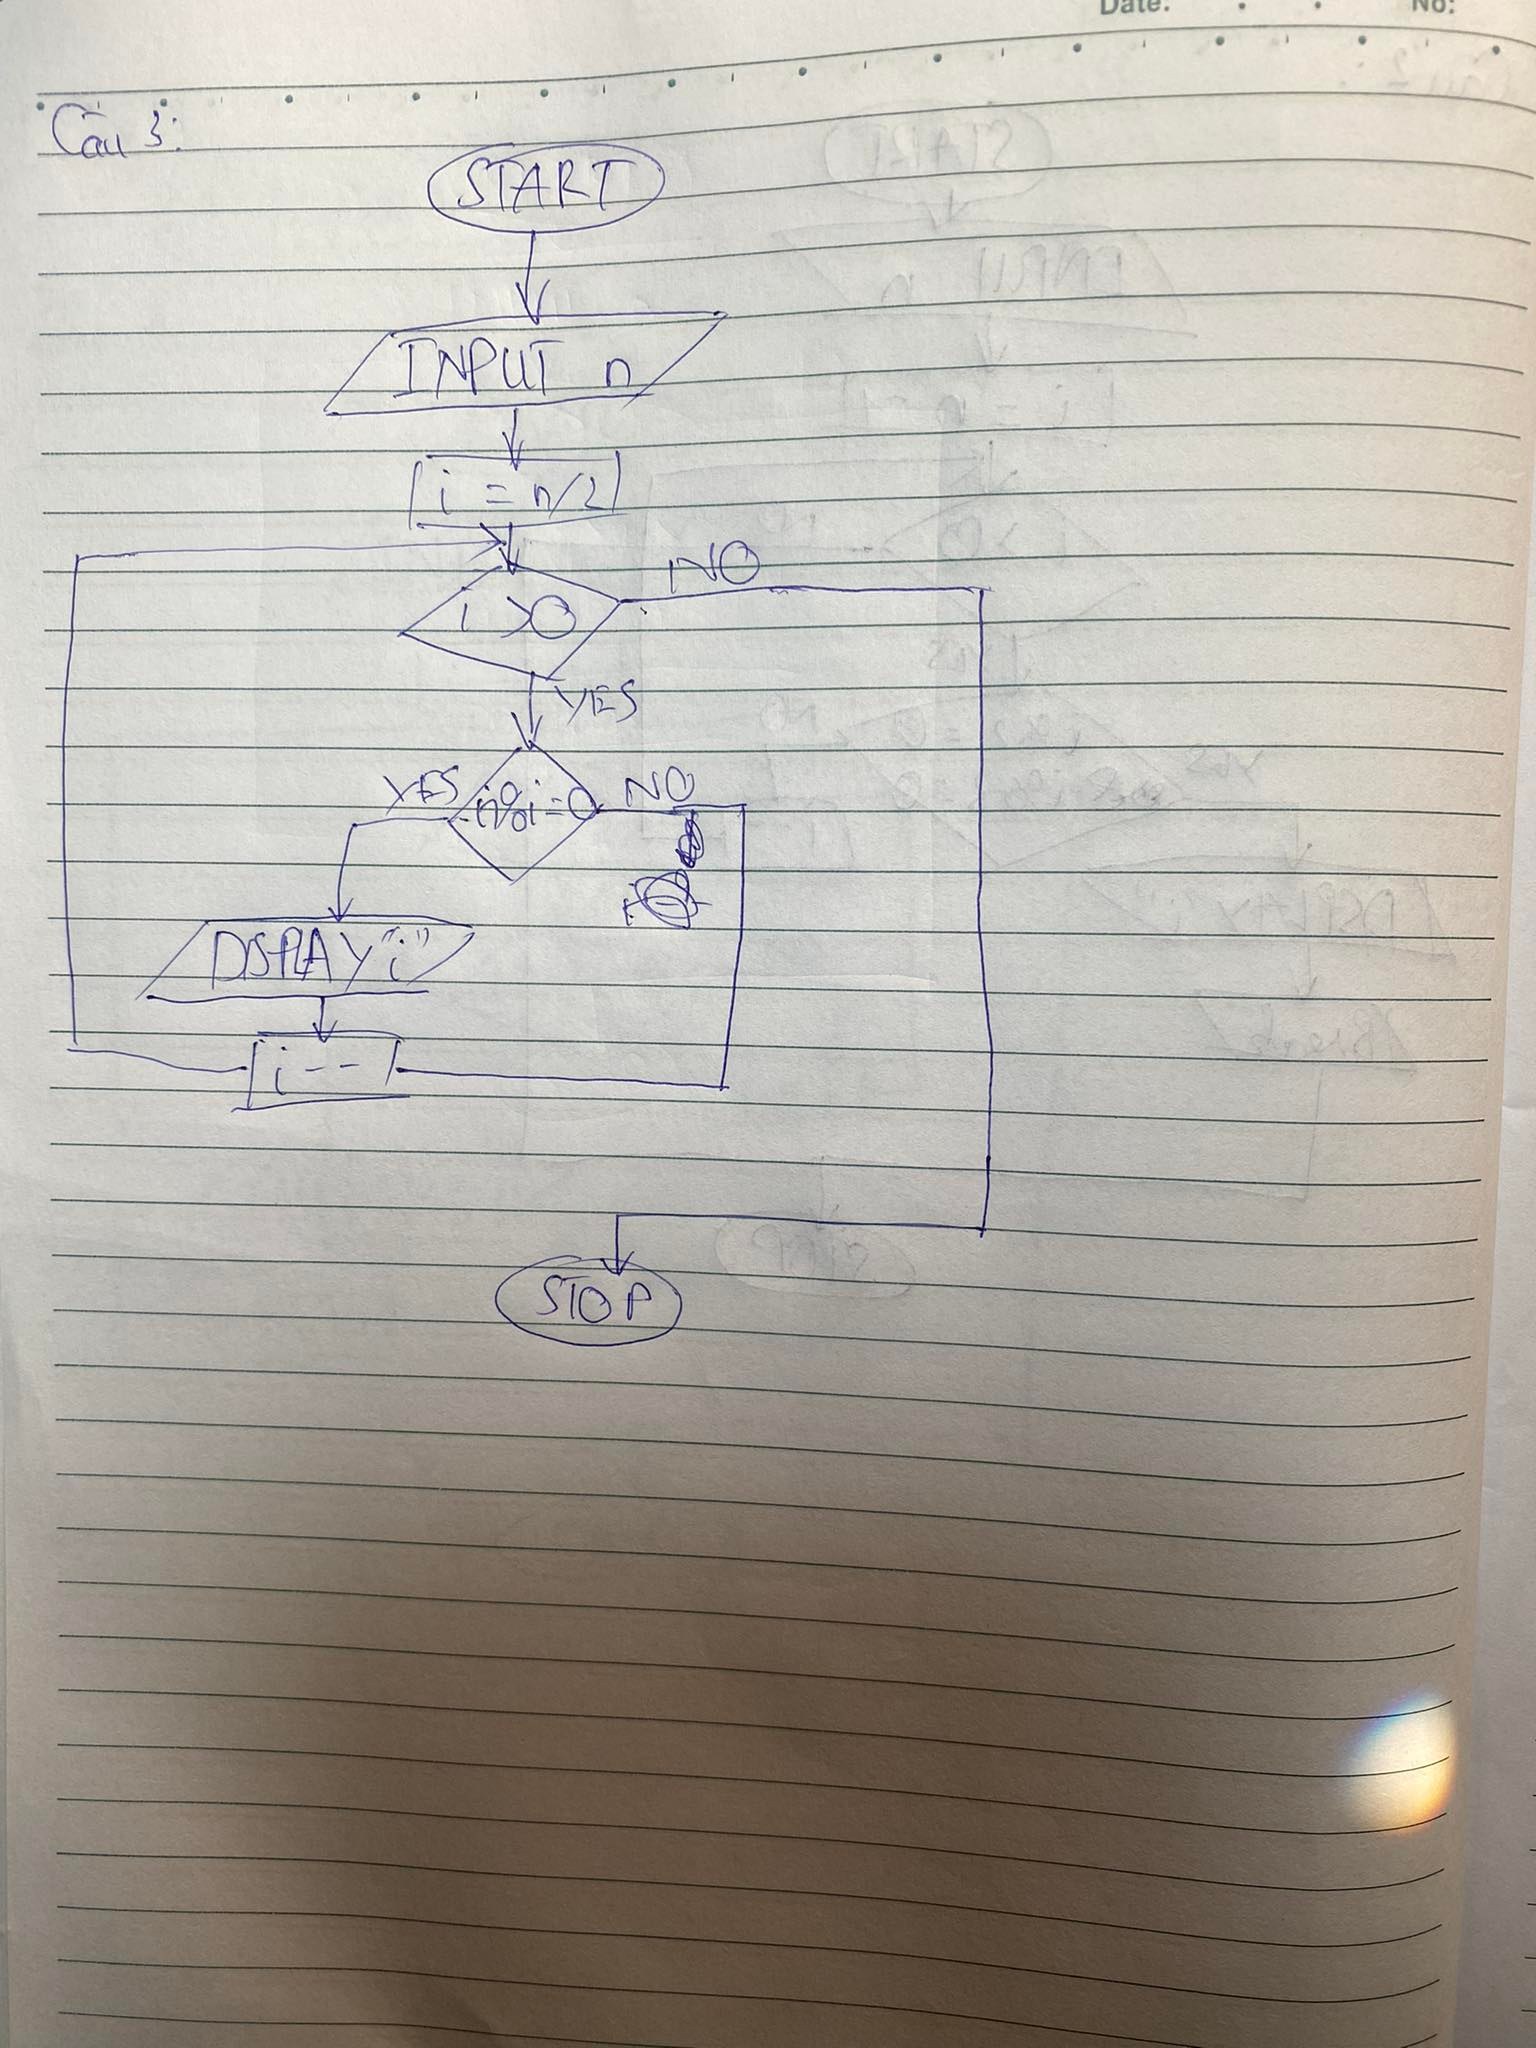 Date: No:
Câu 3:
START
INPUT n
i = n/2
NO
i >0
YES
YES n%i=0 NO
DSPLAY "i"
i--
STOP